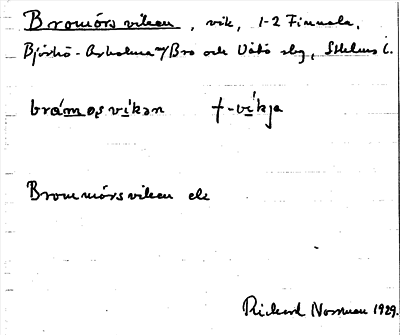 Bromörsviken, vik, 1-2 Finnala,
Björkö-Arholma w/ Bro och Vätö slg, Sthlms l.
brámǫsvíkən †-víkja
Brommörsviken ek
Rickard Norrman 1929.